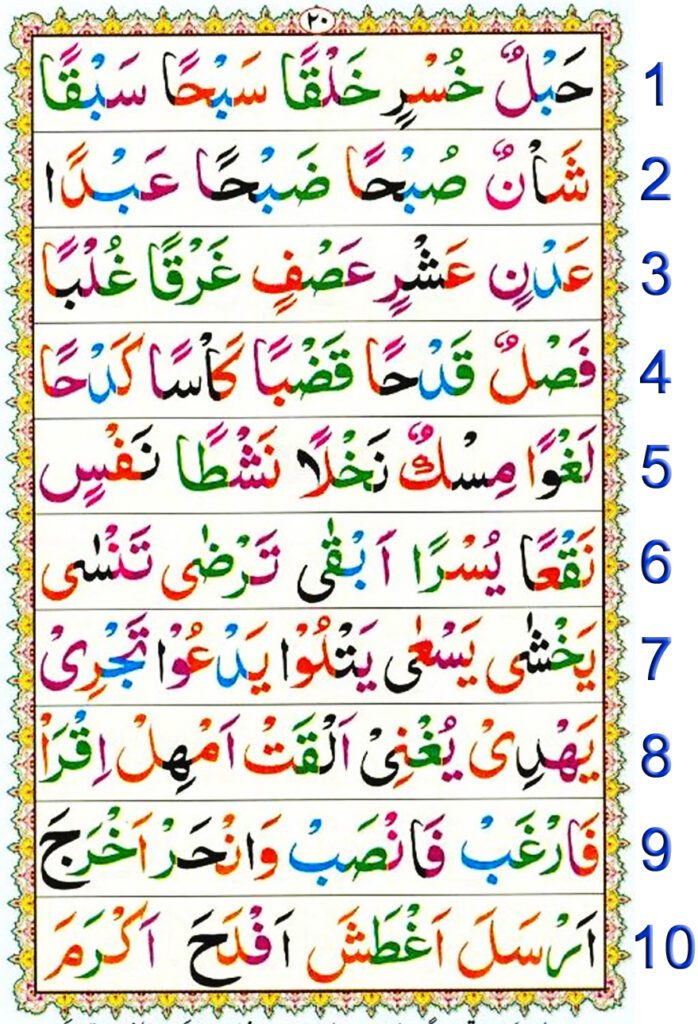 ٢٠
حَبْلٌ خُسْرٍ خَلْقًا سَبْحًا سَبْقًا 1
شَأْنٌ صُبْحًا ضَبْحًا عَبْدًا 2
عَدْنٍ عَشْرٍ عَصْفٍ غَرْقًا غُلْبًا 3
فَصْلٌ قَدْحًا قَضْبًا كَأْسًا كَدْحًا 4
لَغْوًا مِسْكٌ نَخْلًا نَشْطًا نَفْسٍ 5
نَقْعًا يُسْرًا اَبْقٰى تَرْضٰى تَنْسٰى 6
يَخْشٰى يَسْعٰى يَتْلُوْا يَدْعُوْا تَجْرِىْ 7
يَهْدِىْ يُغْنِىْ اَلْقَتْ اَمْهِلْ اِقْرَاْ 8
فَارْغَبْ فَانْصَبْ وَانْحَرْ اَخْرَجَ 9
اَرْسَلَ اَغْطَشَ اَفْلَحَ اَكْرَمَ 10